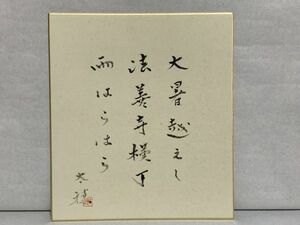 大暑越えし
法善寺横丁
雨はらはら